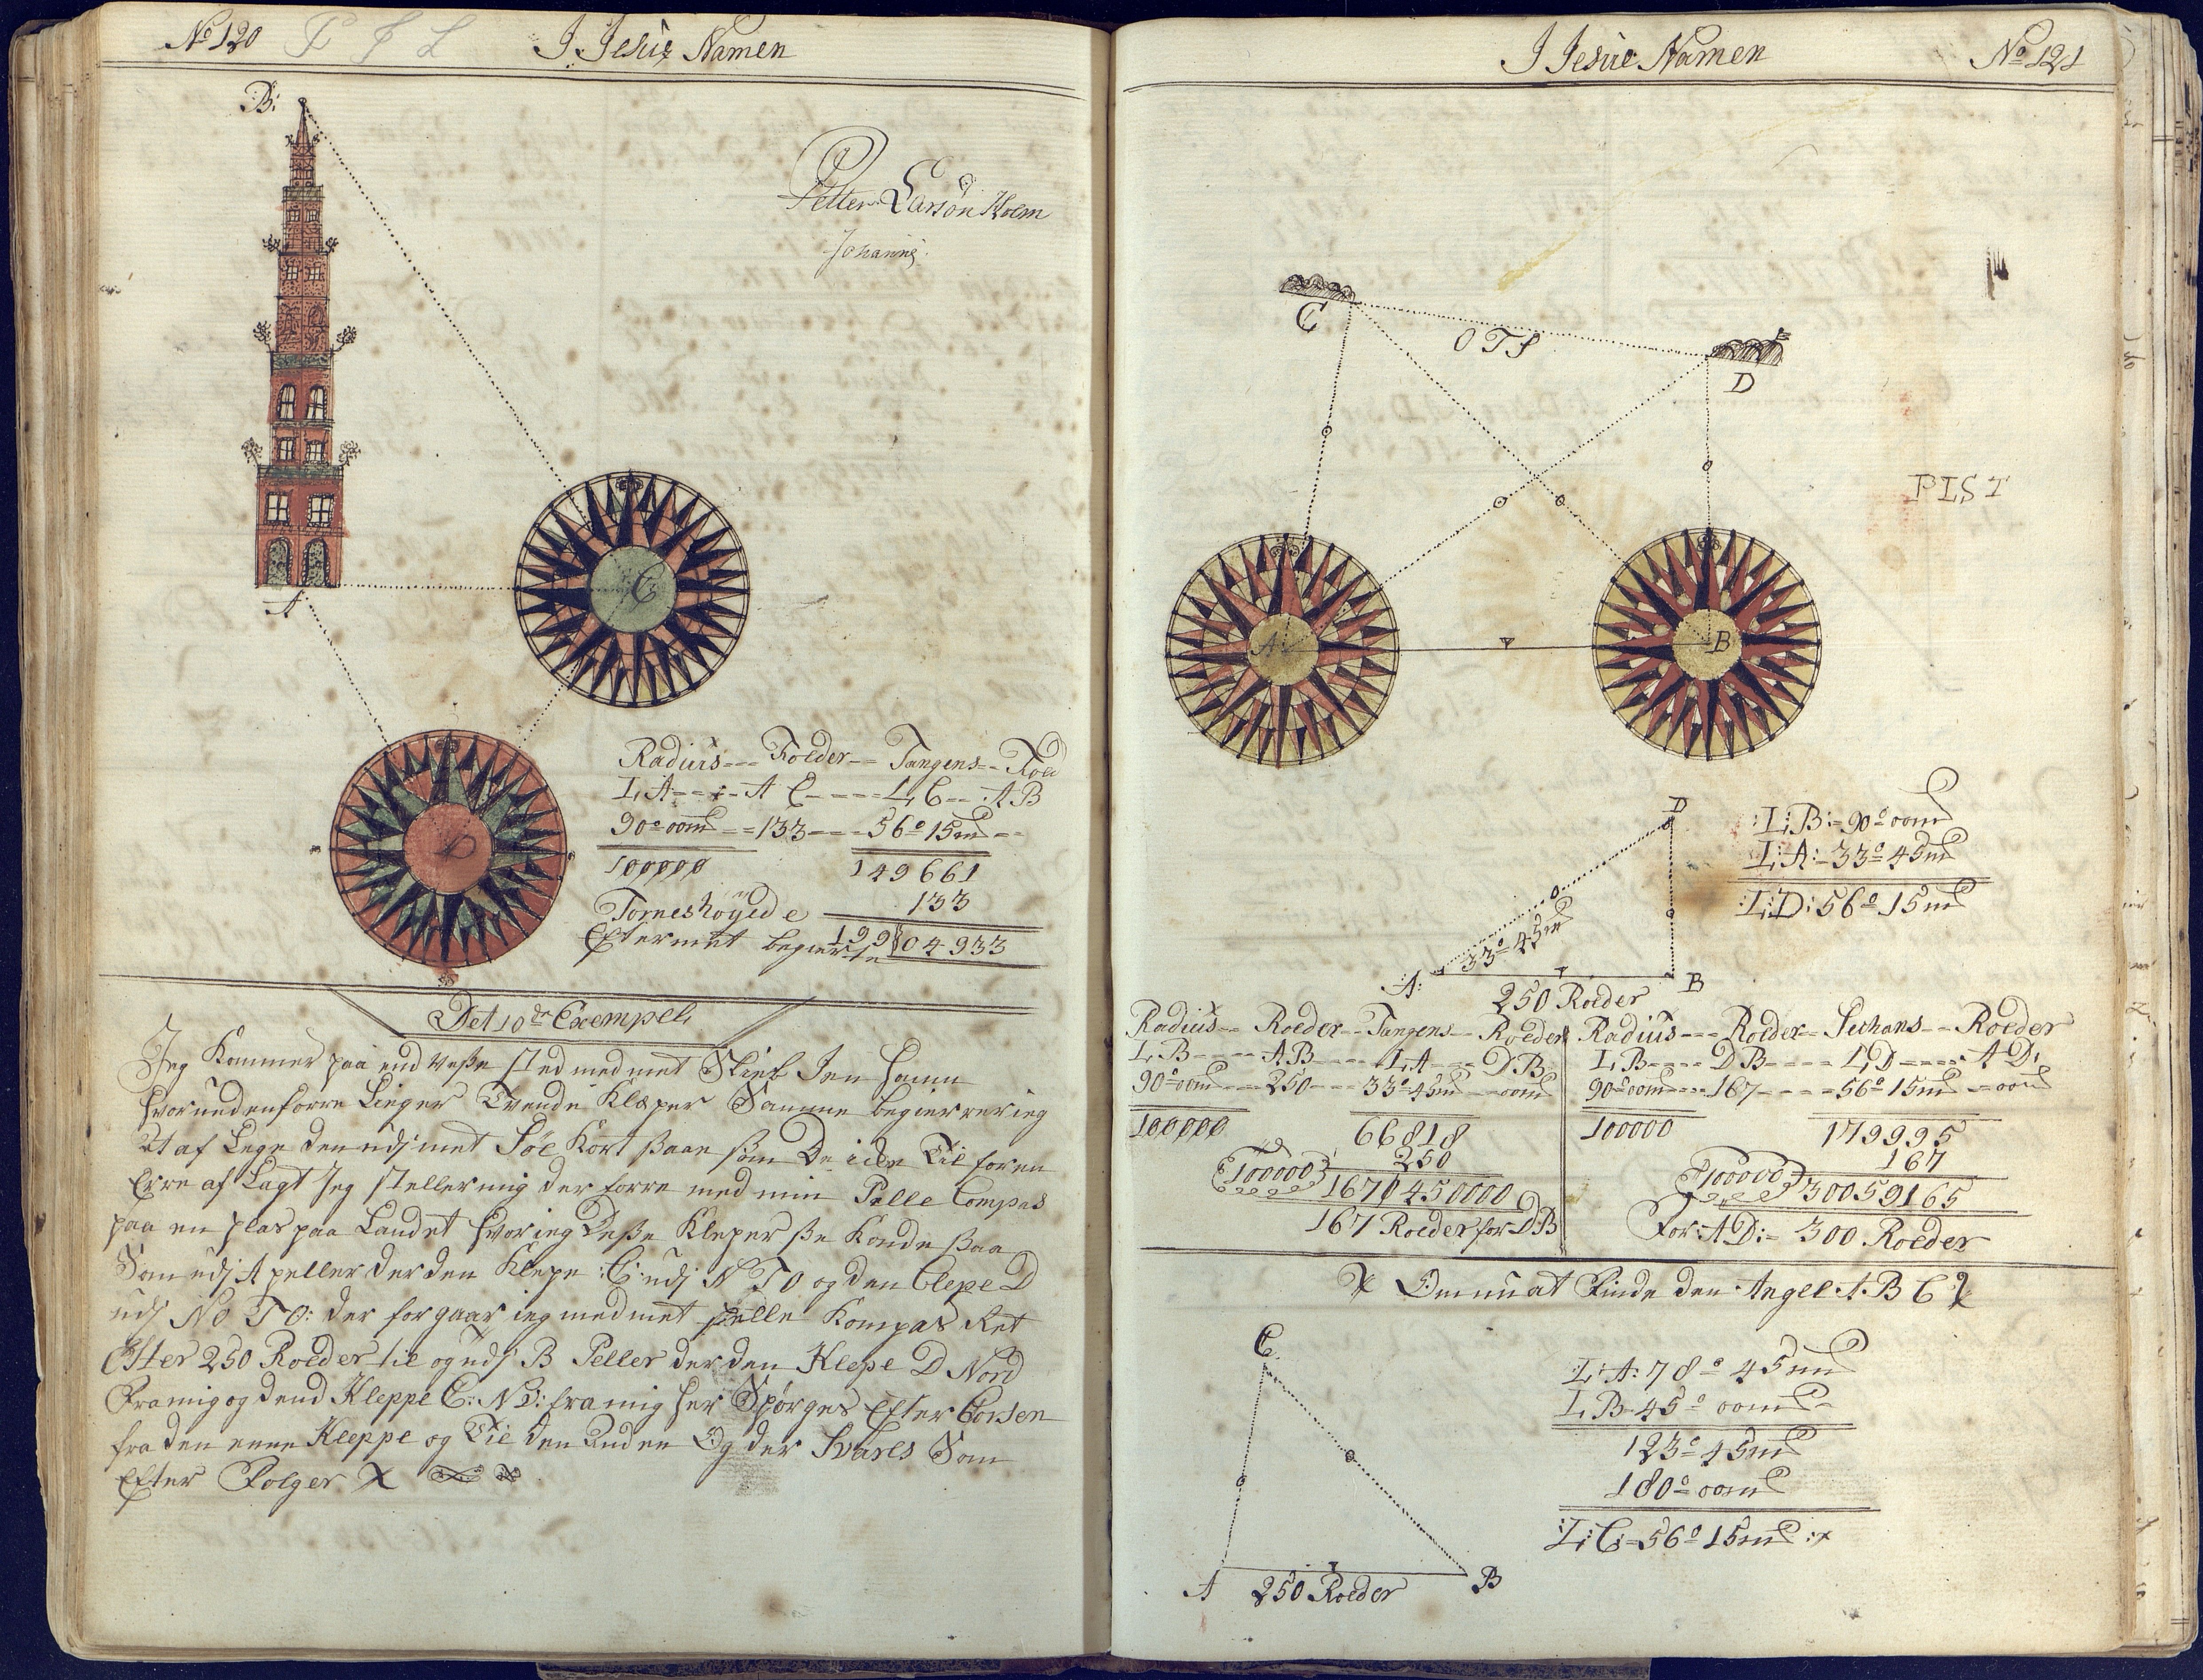 No 120 P J L
I Jesu Namen
B:
Petter Larsøn Holm
Johanns
A
C
D
Radius --- Foeder -- Tangens -- Foed
L A --- A C ---- L C -- A B
90° 00m -- 133 --- 56° 15m --
100000 149661
133
Torneshøyed e
Efter mit begierte 199|04933
Det 10de Exempel
Jeg Kommer paa end
sted med met Skieb Jen hafun
hvor udenforre Lieger Tvende Klæper Samme begierrer ieg
At af Lege den udj met Søe Kort saae som De
Erre af Lagt Jeg steller mig der forre med min Pelle Compas
paa en plas paa Landet hvor ieg Desse Kleper se Konde saa
Som udj A peller der den Klepe :C: udj N T O og den Clepe D
udj NO T O: der for gaar ieg med met pelle Kompas Ret
Øster 250 Roeder til og udj B Peller der den Klepe D Nord
Fra mig og dend Kleppe C: NV: fra mig her Spørges Efter Corsen
fra den enne Kleppe og Til den Anden Og der Svares Som
Efter Folger
I Jesue Namen
No 121
C
O T S
D
PIST
A
B
D
L: B:= 90° 00m
L: A:= 33° 45m
L: D: 56° 15m
33° 45m
A:
B
250 Roeder
Radius -- Roeder -- Tangens -- Roeder
L B ---- A B ---- L A --- D B
90° 00m --- 250 --- 33° 45m -- 00m
100000 66818
250
100000
1670|450000
167 Roeder for D B
Radius --- Roeder -- Sechans -- Roeder
L B ---- D B ---- L D ---- A D:
90° 00m --- 167 ---- 56° 15m -- 00m
100000 179995
167
100000
30059165
For: A D:= 300 Roeder
Om nu at Finde den Angel A B C
C
A
B
250 Roeder
L: A: 78° 45m
L B 45° 00m
123° 45m
180° 00m
L: C= 56° 15m